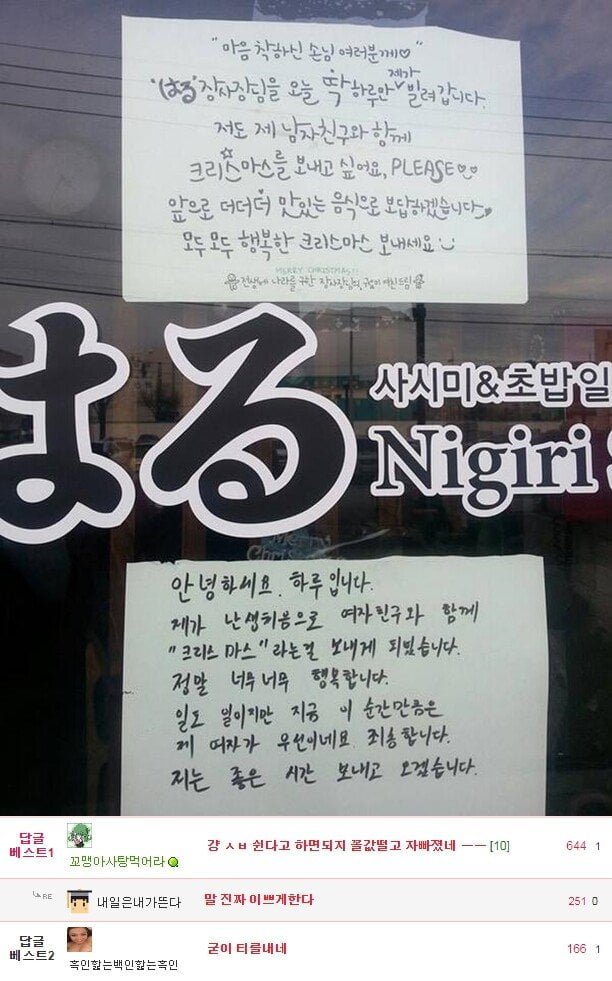 "마음 착하신 손님 여러분께♡"
'はる' 장사장님을 오늘 딱 하루만 제가 빌려 갑니다.
저도 제 남자친구와 함께
크리스마스를 보내고 싶어요, PLEASE♡♡
앞으로 더더더 맛있는 음식으로 보답하겠습니다♥
모두 모두 행복한 크리스마스 보내세요
MERRY CHRISTMAS!!
전생에 나라를 구한 장사장님의 여친드림
はる
사시미&초밥일
Nigiri
안녕하세요. 하루입니다.
제가 난생처음으로 여자친구와 함께
"크리스 마스"라는걸 보내게 되었습니다.
정말 너무너무 행복합니다.
일도 일이지만 지금 이 순간만큼은
제 여자가 우선이네요 죄송합니다.
저는 좋은 시간 보내고 오겠습니다.
답글 베스트1
걍 ㅅㅂ 쉰다고 하면되지 꼴값떨고 자빠졌네 ㅡㅡ [10] 644 1
꼬맹아사탕먹어라
RE 내일은내가뜬다 말 진짜 이쁘게한다 251 0
답글 베스트2
굳이 티를내네 166 1
흑인핥는백인핥는흑인